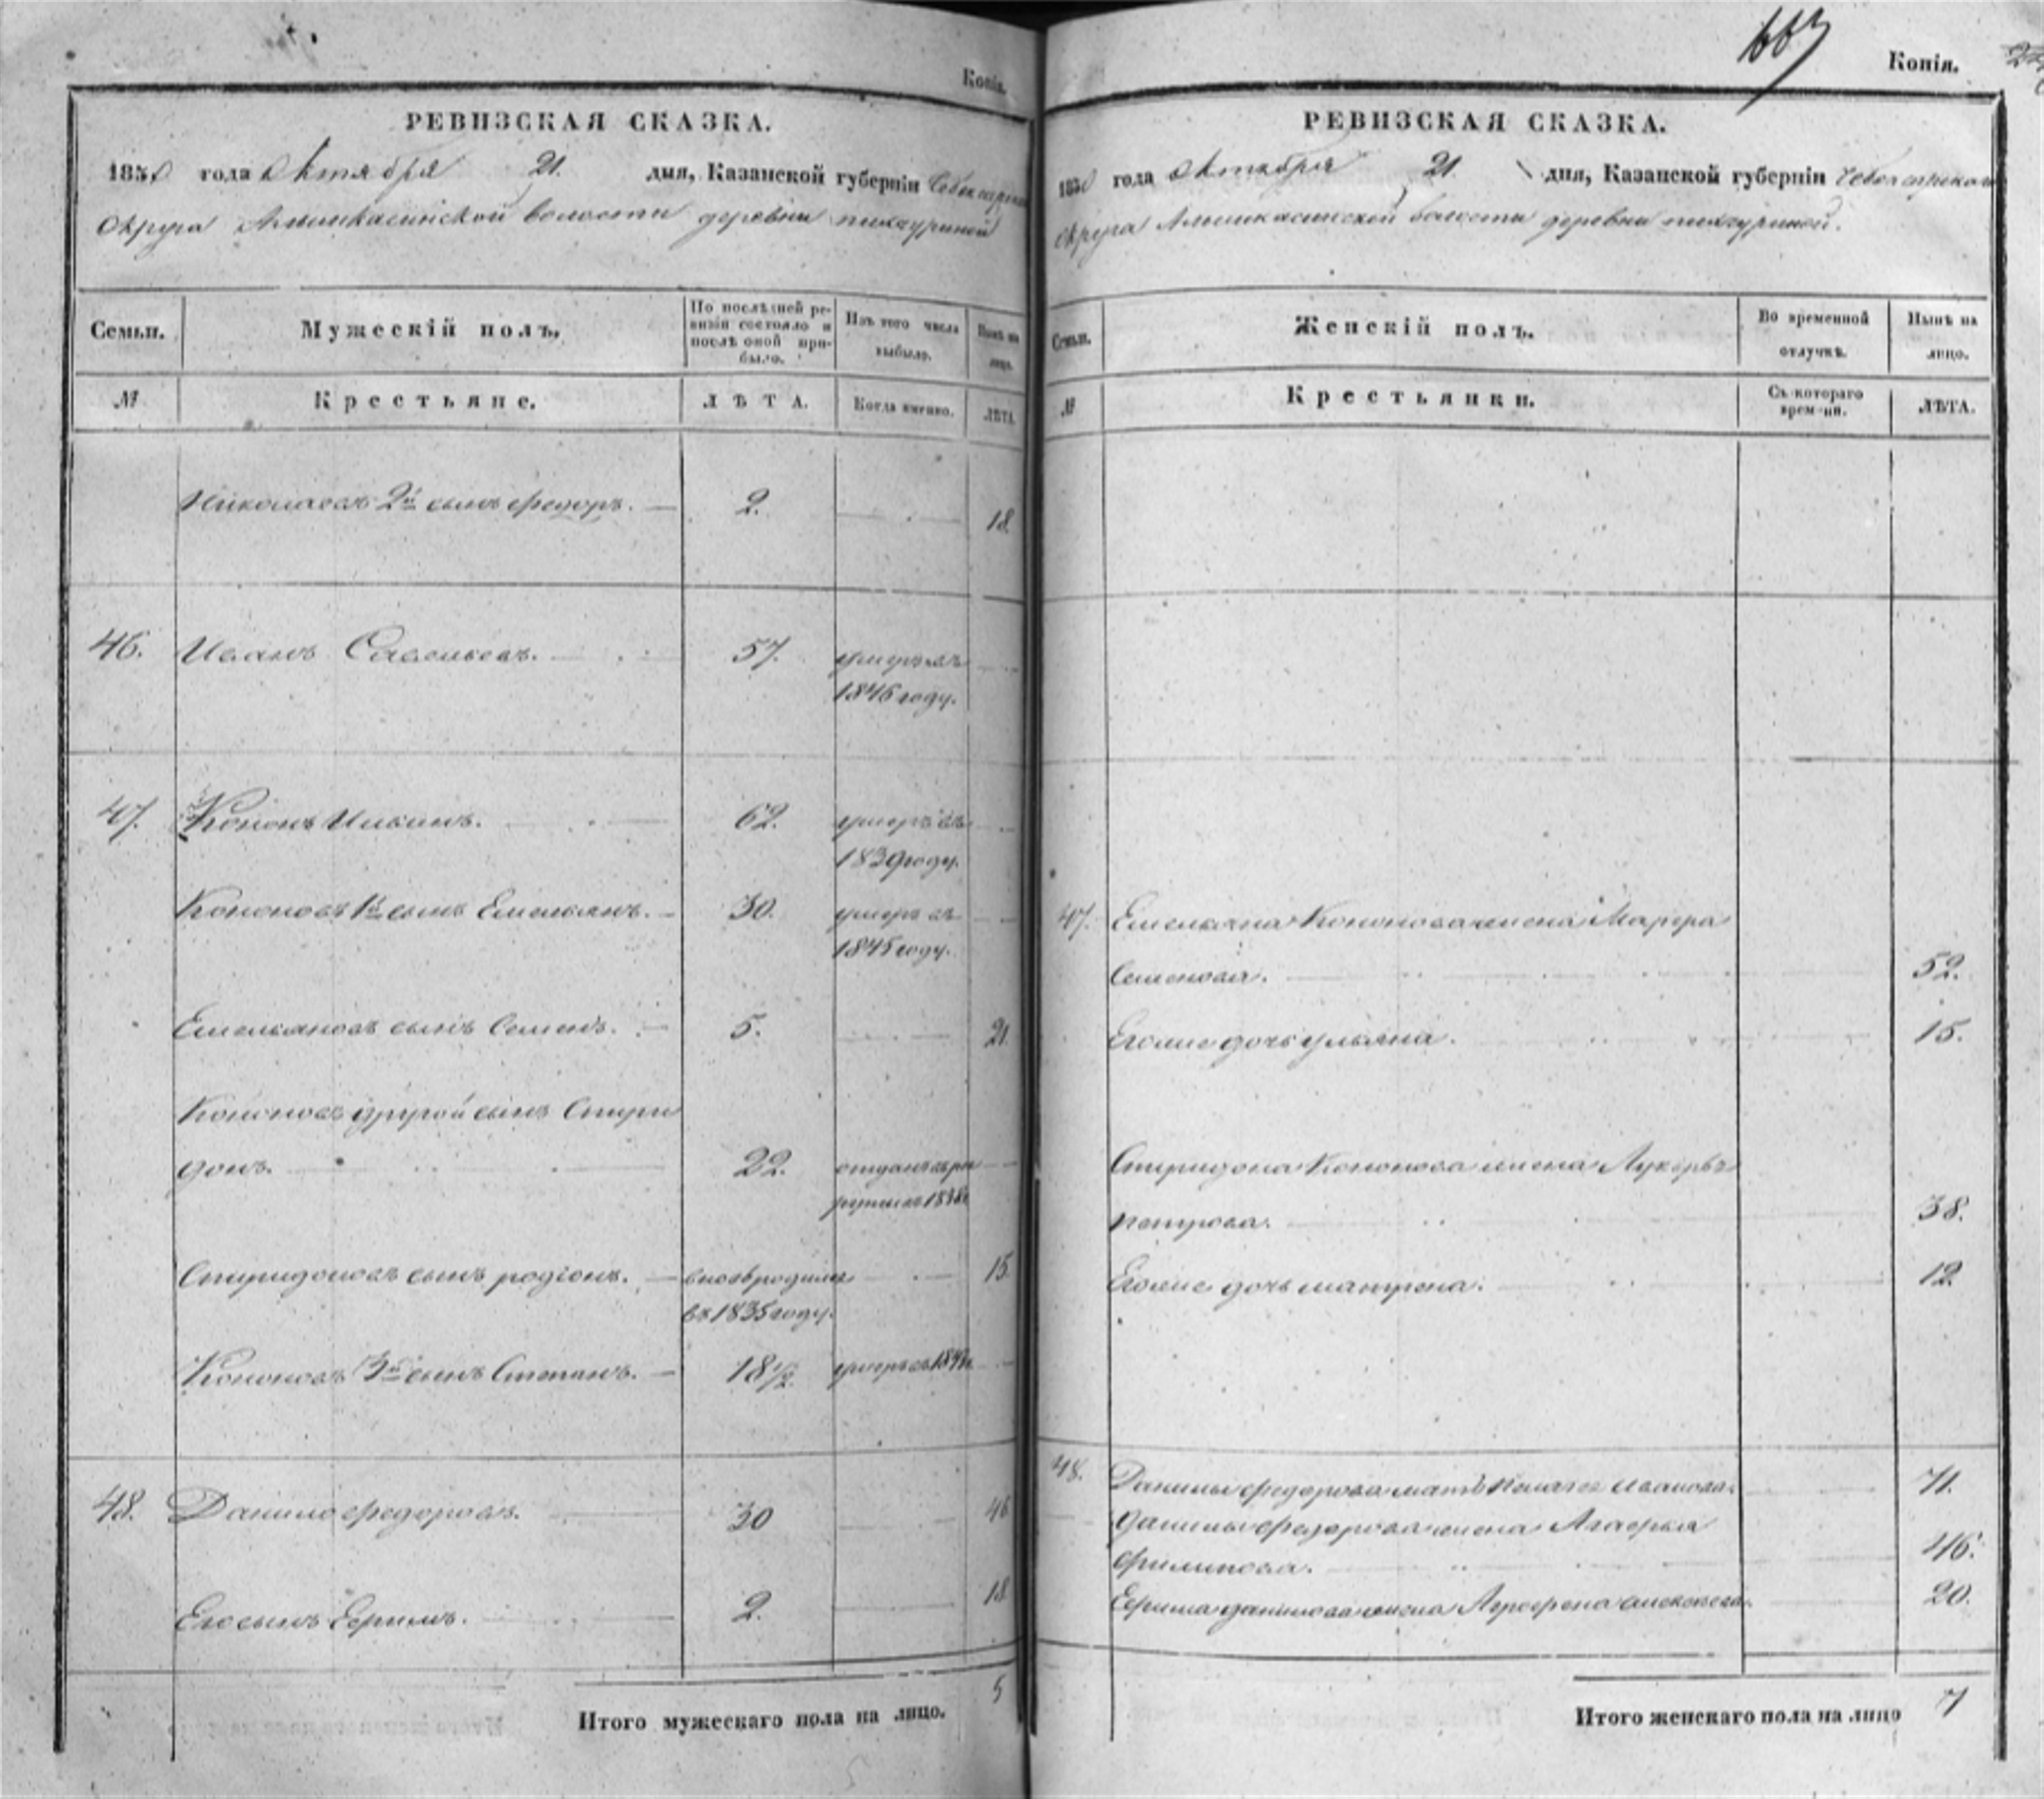 Копія.
РЕВИЗСКАЯ СКАЗКА.
1850 года Октября 21. дня, Казанской губерніи Чебоксарскаго
Округа Алымкасинской волости деревни
Семьи.
Мужескій полъ.
По послѣдней ре-
визіи состояло и
послѣ оной при-
было.
Изъ того числа
выбыло.
Нынѣ на
лицо.
№
Крестьяне.
ЛѢТА.
Когда именно.
ЛѢТА.
Николаевъ 2й сынъ Федоръ. 2. 18
46. Иванъ Савельевъ. 57. умеръ въ
1845 году.
47. Кононъ 62. умеръ въ
1839 году.
Кононовъ 1й сынъ Емельянъ. 30. умеръ въ
1845 году.
Емельяновъ сынъ Семенъ. 5. 21.
Кононовъ другой сынъ Спири
донъ. 22. отданъ въ ре
круты въ 1838
Спиридоновъ сынъ родіонъ. вновь родился 15.
въ 1835 году.
Кононовъ 3й сынъ Степанъ. 18 1/2. умеръ въ
48. Данило Федоровъ. 30 46
Его сынъ Ефимъ. 2. 18
Итого мужескаго пола на лицо. 5
667
Копія.
РЕВИЗСКАЯ СКАЗКА.
1850 года Октября 21. дня, Казанской губерніи Чебоксарскаго
Округа Алымкасинской волости деревни
Семьи.
Женскій полъ.
Во временной
отлучкѣ.
Нынѣ на
лицо.
№
Крестьянки.
Съ котораго
времени.
ЛѢТА.
47. Емельяна Кононова жена Марфа
Семенова. 52.
Его же дочь ульяна. 15.
Спиридона Кононова жена Лукерья
петрова. 38.
Его же дочь матрена. 12.
48. Данилы Федорова мать Пелагея Иванова. 71.
Данилы Федорова жена Агафья
Филипова. 46.
Ефима данилова жена Агрофена алексеева. 20.
Итого женскаго пола на лицо 7